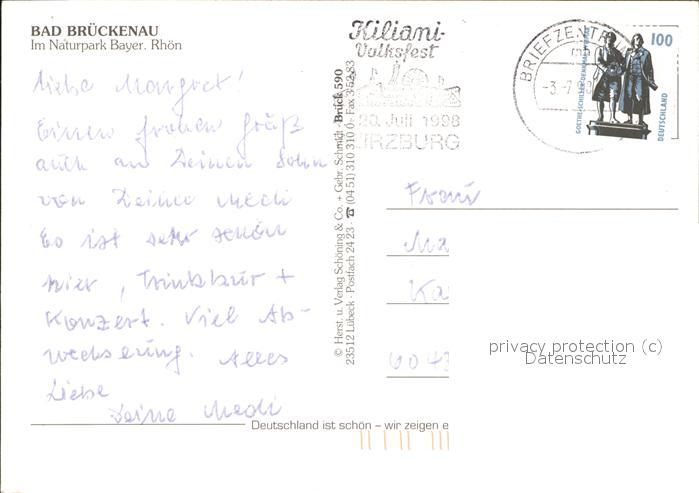 BAD BRÜCKENAU
Im Naturpark Bayer. Rhön
Liebe Margret!
Einen frohen Gruß
auch an Deinen Sohn
von Deiner Medi
Es ist sehr schön
hier, Trinkkur +
Konzert. Viel Ab-
wechserung. Alles
Liebe
Deine Medi
© Herst. u. Verlag Schöning & Co. + Gebr. Schmidt · Brück 590
23512 Lübeck · Postfach 24 23 · ☎ (04 51) 310 310
Kiliani-
Volksfest
20. Juli 1998
ÜRZBURG
BRIEFZENTRUM
-3.-7.
100
GOETHE-SCHILLER-DENKMAL
DEUTSCHLAND
Frau
Ma
Ka
6043
privacy protection (c)
Datenschutz
Deutschland ist schön – wir zeigen e